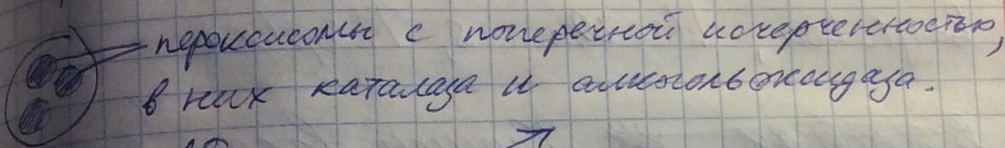 пероксисомы с поперечной исчерченностью,
в них каталаза и алкогольоксидаза.